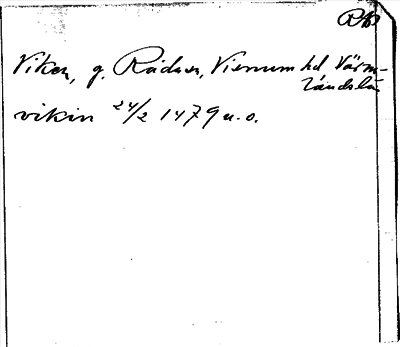 Viken, g. Råda sn, Visnum hd Värm-
landslän
vikin 24/2 1479 u. o.